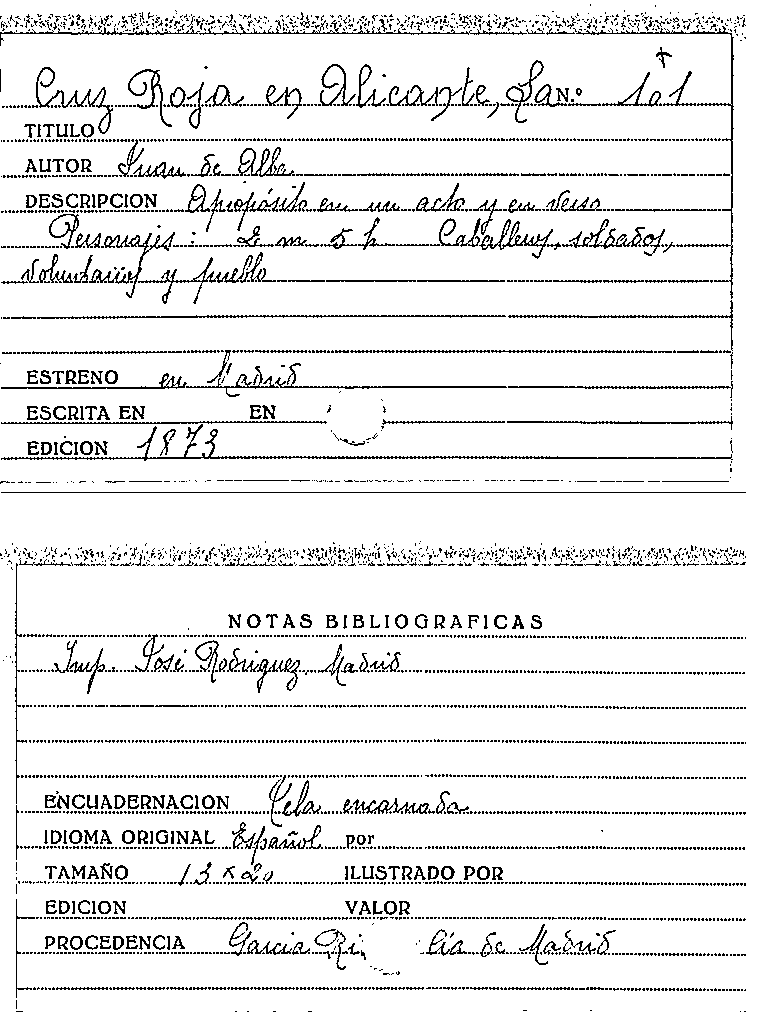 Cruz Roja en Alicante, La N.º 101
TITULO
AUTOR Juan de Alba
DESCRIPCION Apropósito en un acto y en verso
Personajes: 2 m 5 h Caballeros, soldados,
voluntarios y pueblo
ESTRENO en Madrid
ESCRITA EN EN
EDICION 1873
NOTAS BIBLIOGRAFICAS
Imp. José Rodriguez, Madrid
ENCUADERNACION Tela encarnada
IDIOMA ORIGINAL Español por
TAMAÑO 13 x 20 ILUSTRADO POR
EDICION VALOR
PROCEDENCIA Garcia Ri de Madrid